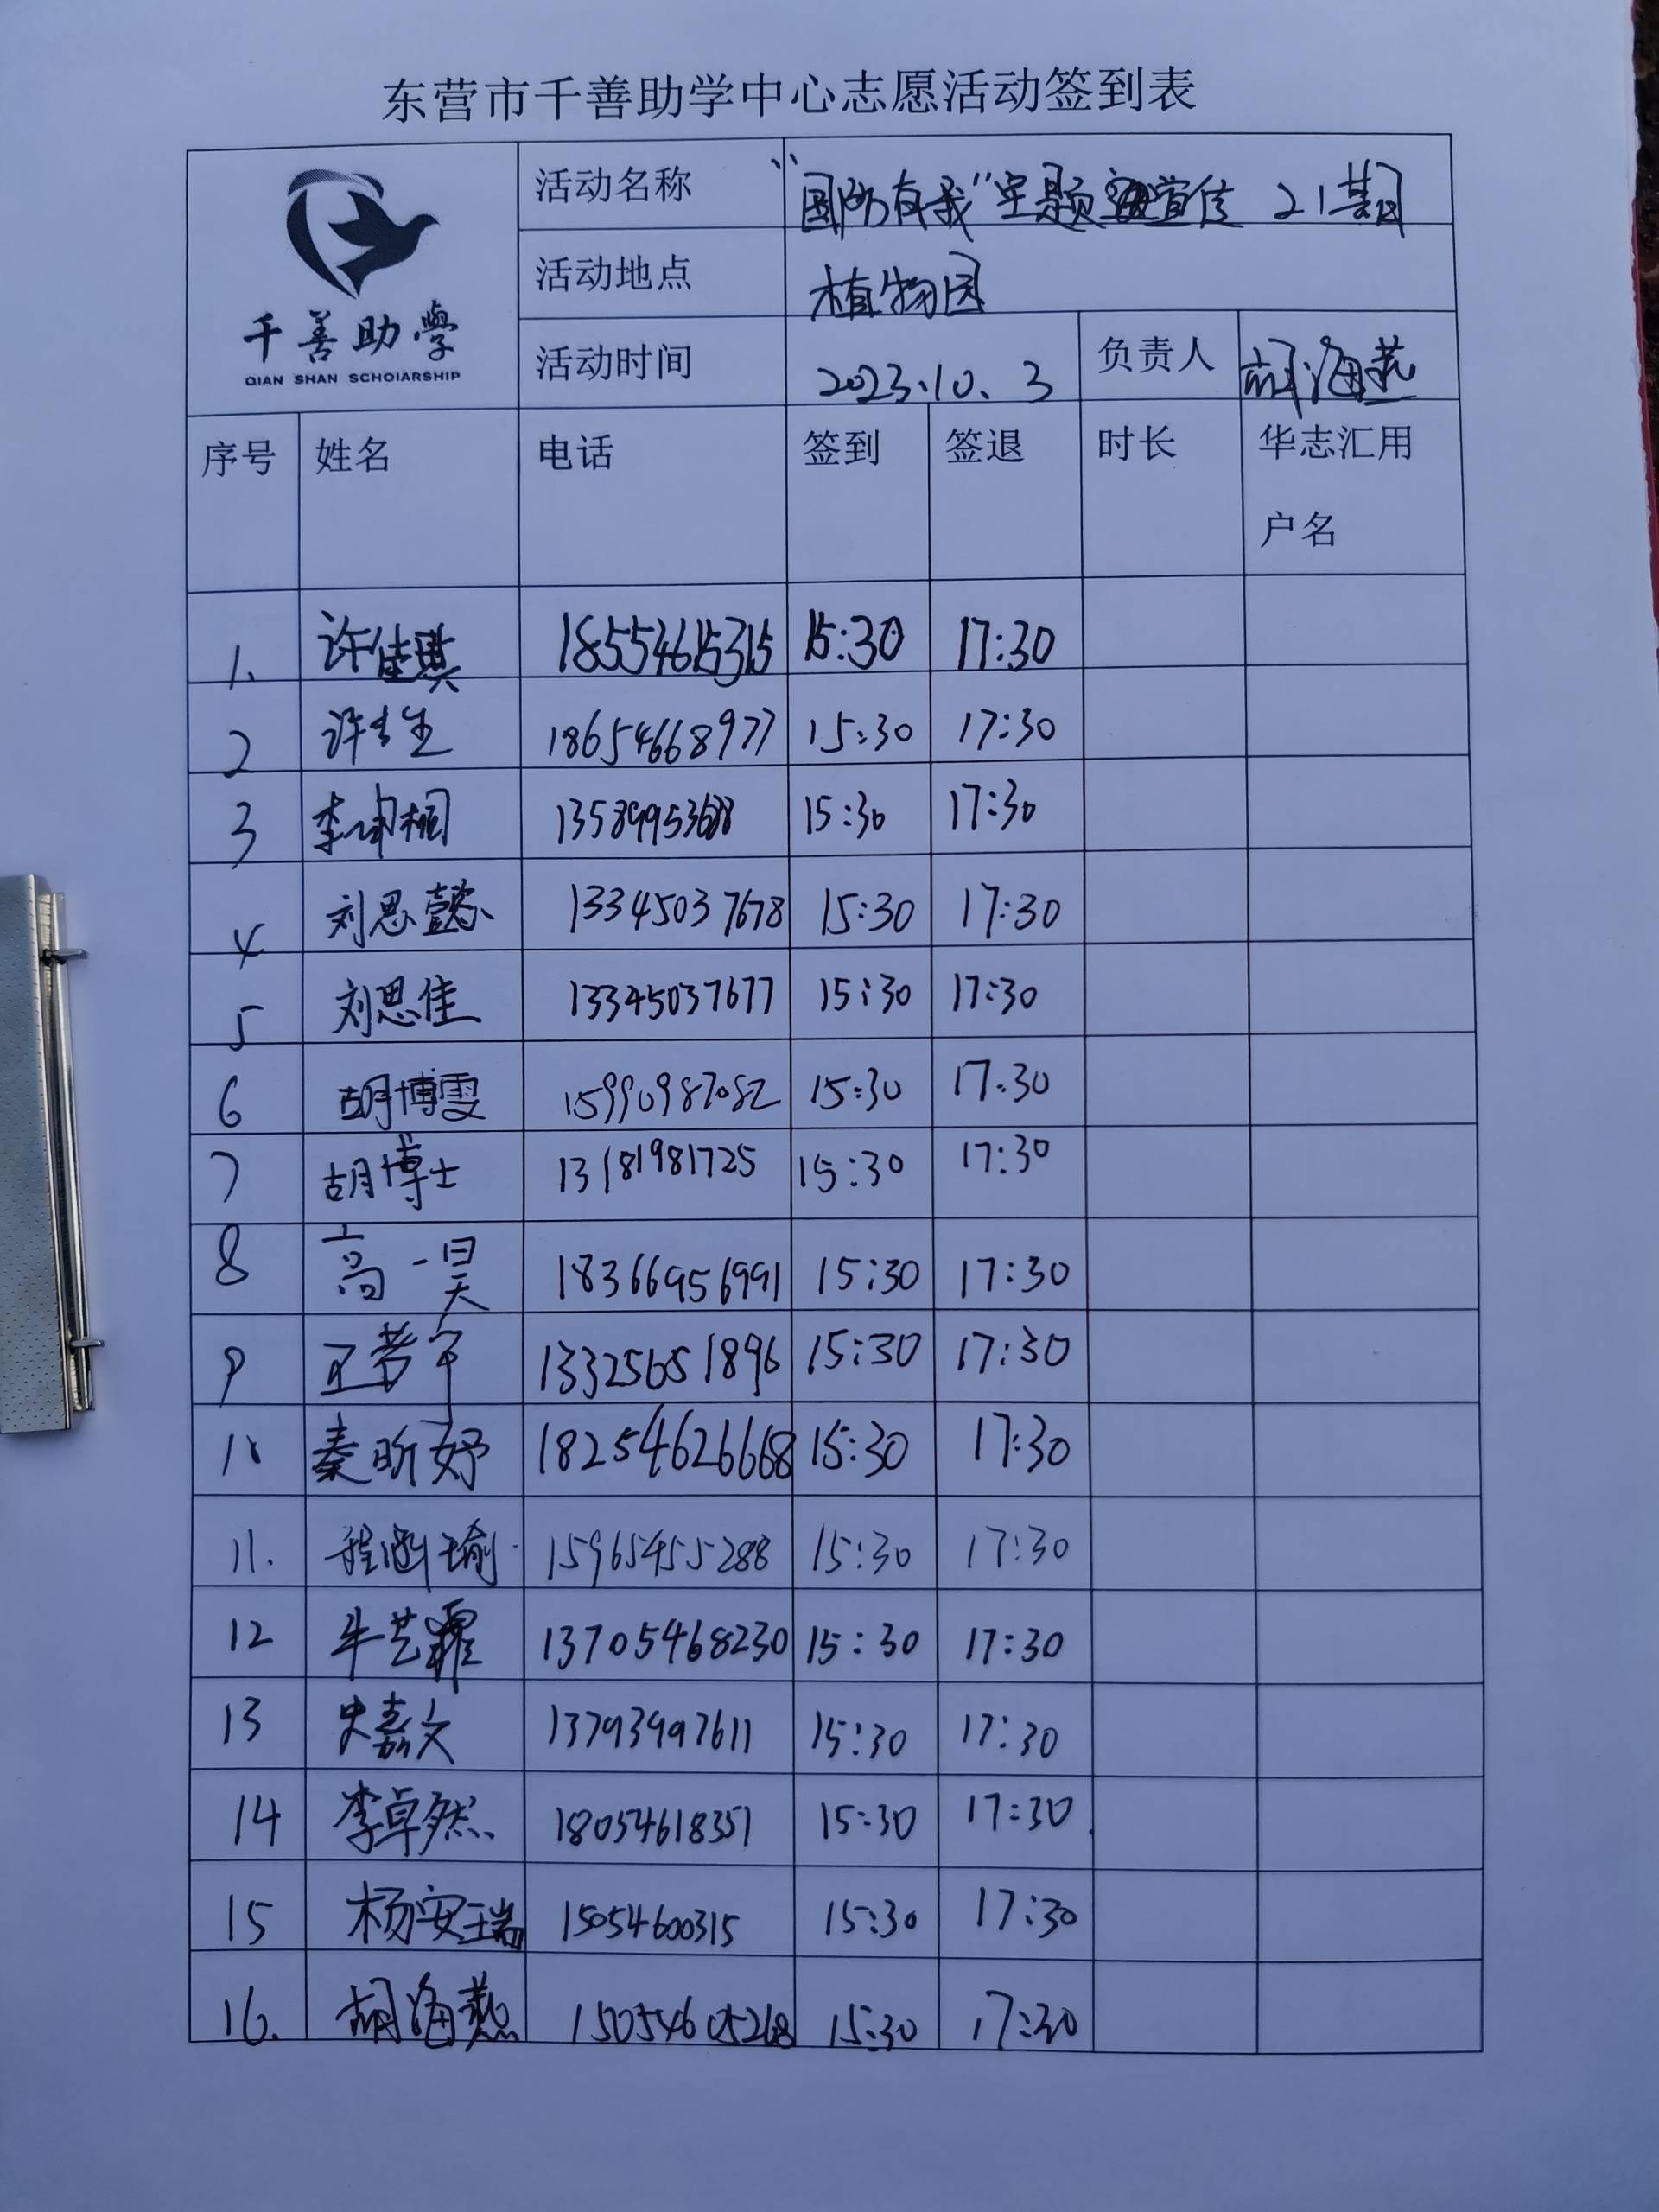 东营市千善助学中心志愿活动签到表
千善助學
QIAN SHAN SCHOIARSHIP
活动名称 "国防有我"主题宣传 21期
活动地点 植物园
活动时间 2023.10.3 负责人 胡海燕
序号 姓名 电话 签到 签退 时长 华志汇用户名
1. 许佳琪 18554615315 15:30 17:30
2 18654668977 15:30 17:30
3 李坤桐 13589953688 15:30 17:30
4 刘思懿 13345037678 15:30 17:30
5 刘思佳 13345037677 15:30 17:30
6 胡博雯 15990987082 15:30 17:30
7 胡博士 13181981725 15:30 17:30
8 高一昊 18366956991 15:30 17:30
9 13325651896 15:30 17:30
10 秦昕妤 18254626668 15:30 17:30
11. 程涵瑜 15965455288 15:30 17:30
12 牛艺霏 13705468230 15:30 17:30
13 史嘉文 13793997611 15:30 17:30
14 李卓然 18054618351 15:30 17:30
15 杨安瑞 15054600315 15:30 17:30
16. 胡海燕 15054605268 15:30 17:30